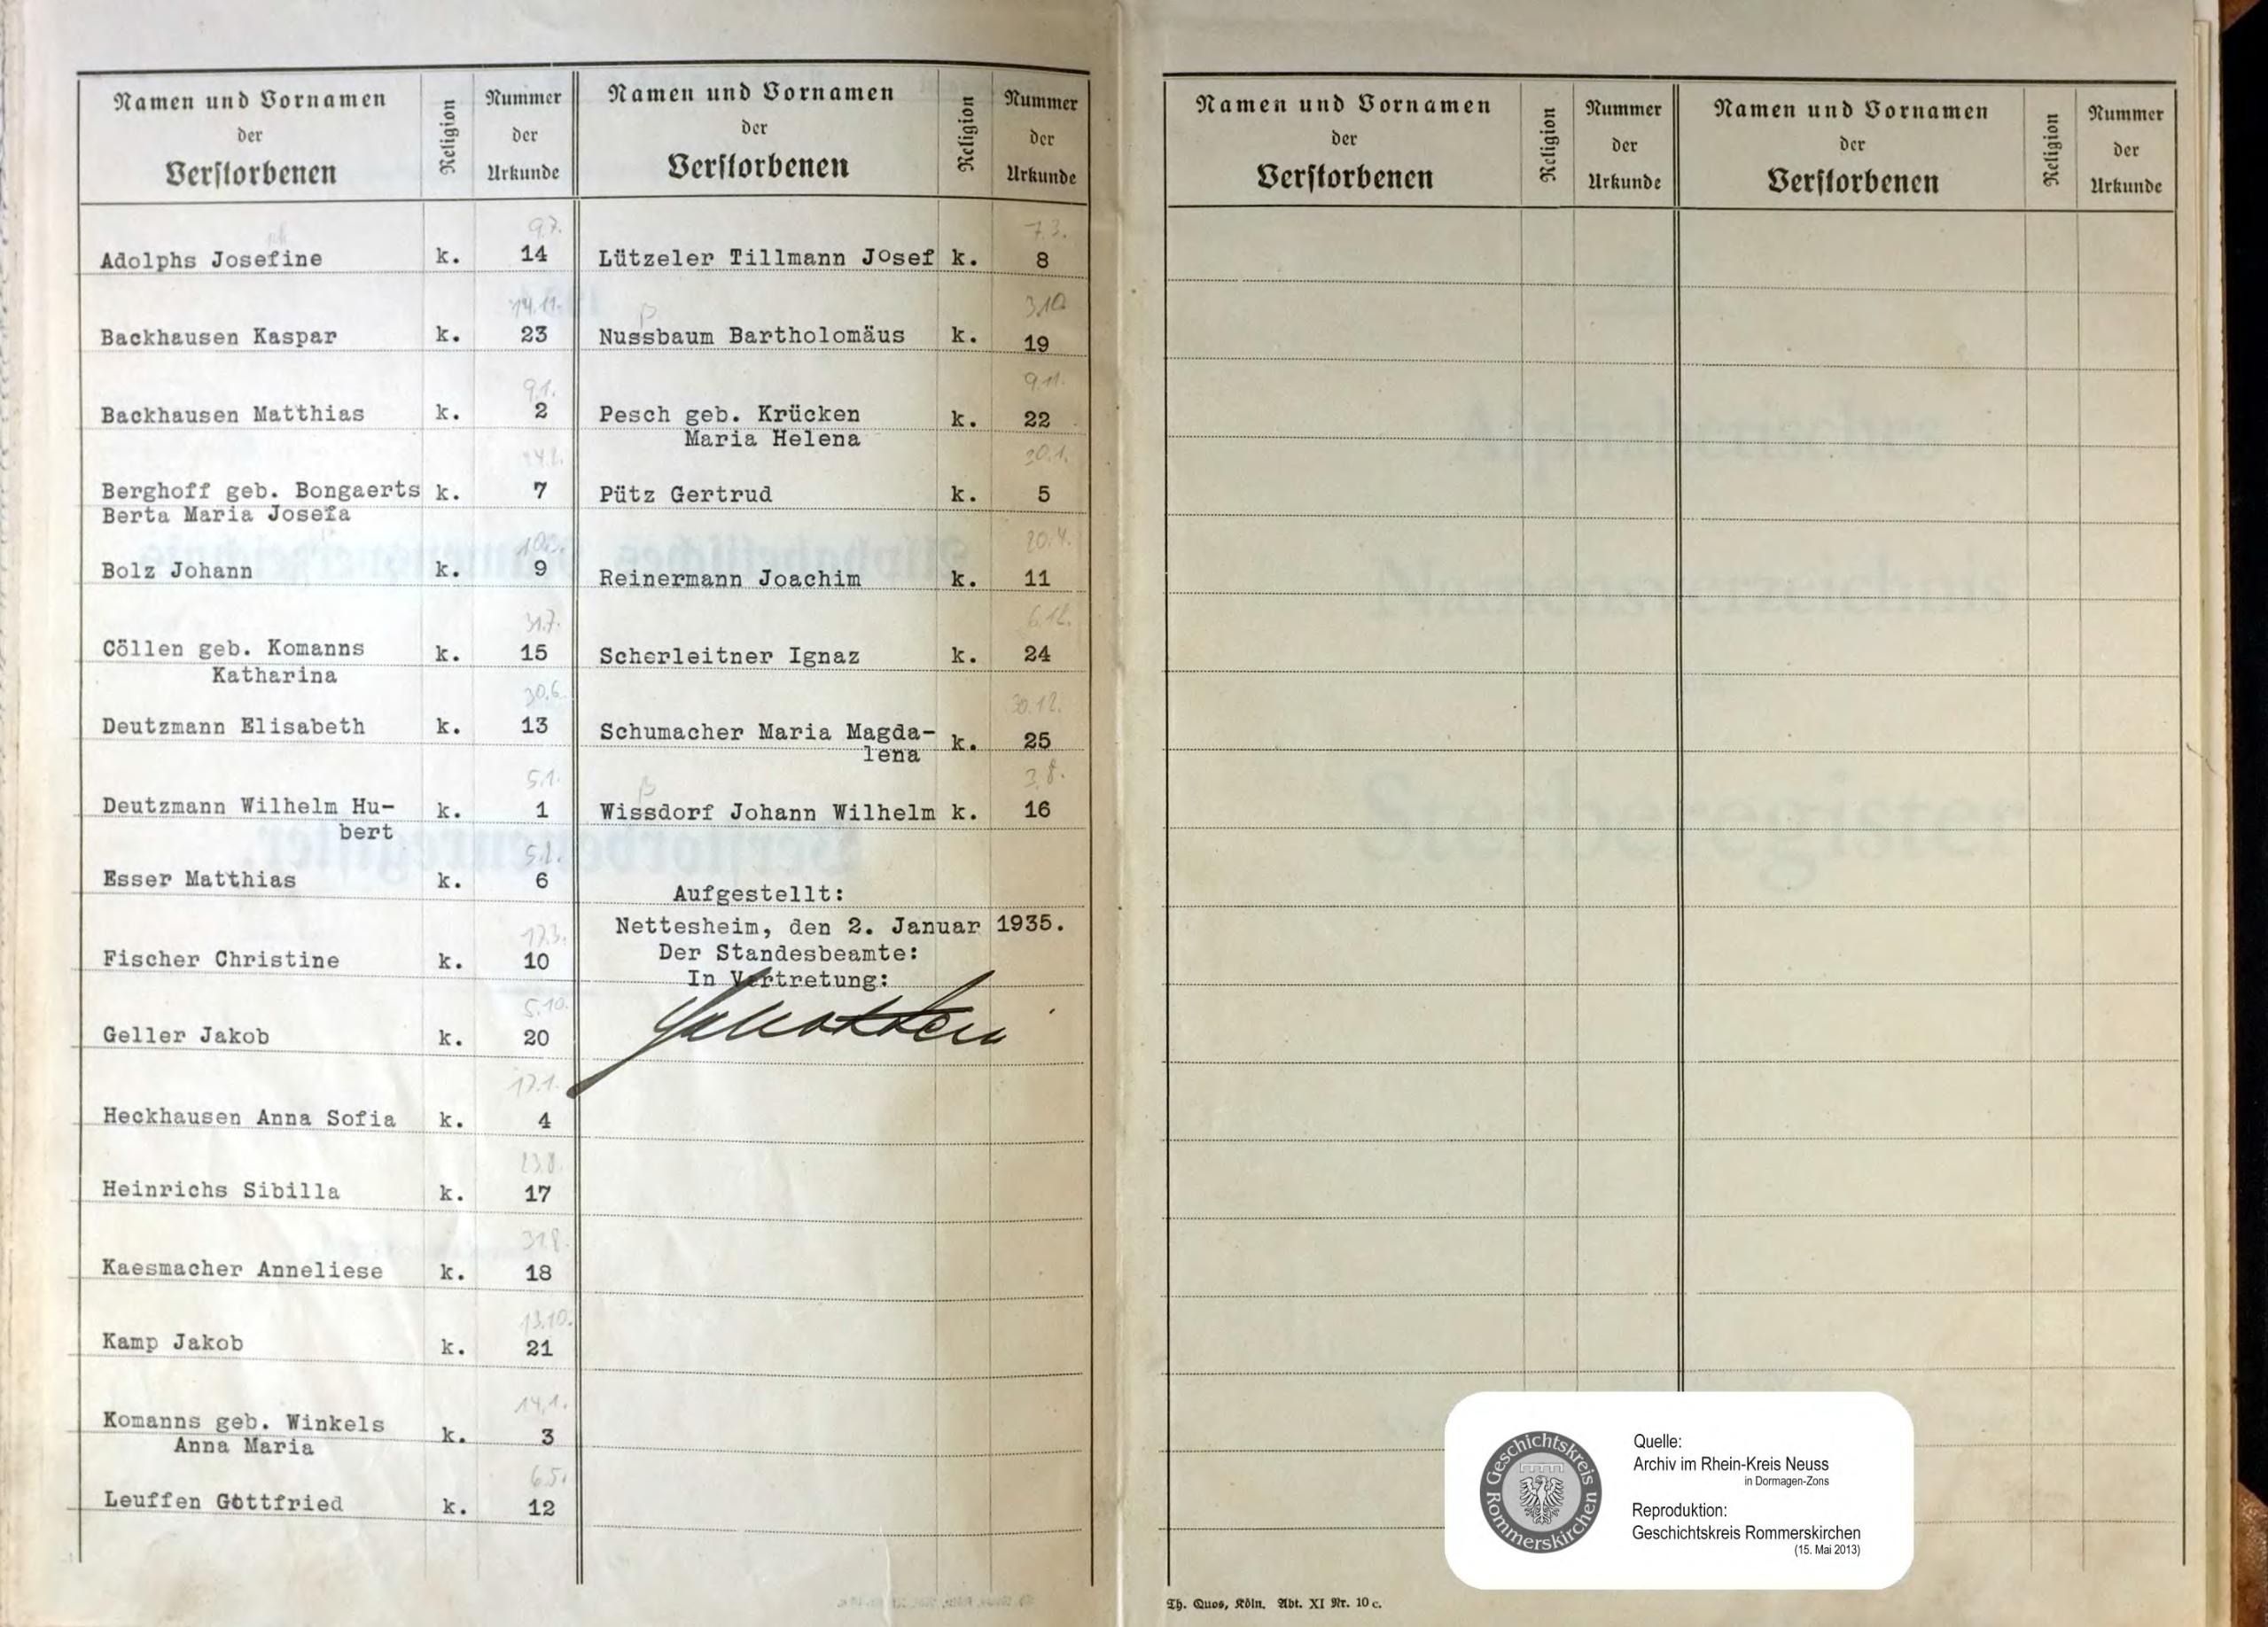 Namen und Vornamen
der
Verstorbenen
Religion
Nummer
der
Urkunde
9.7.
Adolphs Josefine k. 14
14.11.
Backhausen Kaspar k. 23
9.1.
Backhausen Matthias k. 2
Berghoff geb. Bongaerts k. 7
Berta Maria Josefa
Bolz Johann k. 9
31.7.
Cöllen geb. Komanns k. 15
Katharina
30.6.
Deutzmann Elisabeth k. 13
5.1.
Deutzmann Wilhelm Hu- k. 1
bert
5.2.
Esser Matthias k. 6
17.3.
Fischer Christine k. 10
5.10.
Geller Jakob k. 20
17.1.
Heckhausen Anna Sofia k. 4
23.8.
Heinrichs Sibilla k. 17
31.8.
Kaesmacher Anneliese k. 18
13.10.
Kamp Jakob k. 21
14.1.
Komanns geb. Winkels k. 3
Anna Maria
6.5.
Leuffen Gottfried k. 12
Namen und Vornamen
der
Verstorbenen
Religion
Nummer
der
Urkunde
7.3.
Lützeler Tillmann Josef k. 8
ß 3.10
Nussbaum Bartholomäus k. 19
9.11.
Pesch geb. Krücken k. 22
Maria Helena
20.1.
Pütz Gertrud k. 5
20.4.
Reinermann Joachim k. 11
6.12.
Scherleitner Ignaz k. 24
30.12.
Schumacher Maria Magda- k. 25
lena
ß 3.8.
Wissdorf Johann Wilhelm k. 16
Aufgestellt:
Nettesheim, den 2. Januar 1935.
Der Standesbeamte:
In Vertretung:
Namen und Vornamen
der
Verstorbenen
Religion
Nummer
der
Urkunde
Namen und Vornamen
der
Verstorbenen
Religion
Nummer
der
Urkunde
Th. Quos, Köln. Abt. XI Nr. 10 c.
Geschichtskreis
Rommerskirchen
Quelle:
Archiv im Rhein-Kreis Neuss
in Dormagen-Zons
Reproduktion:
Geschichtskreis Rommerskirchen
(15. Mai 2013)